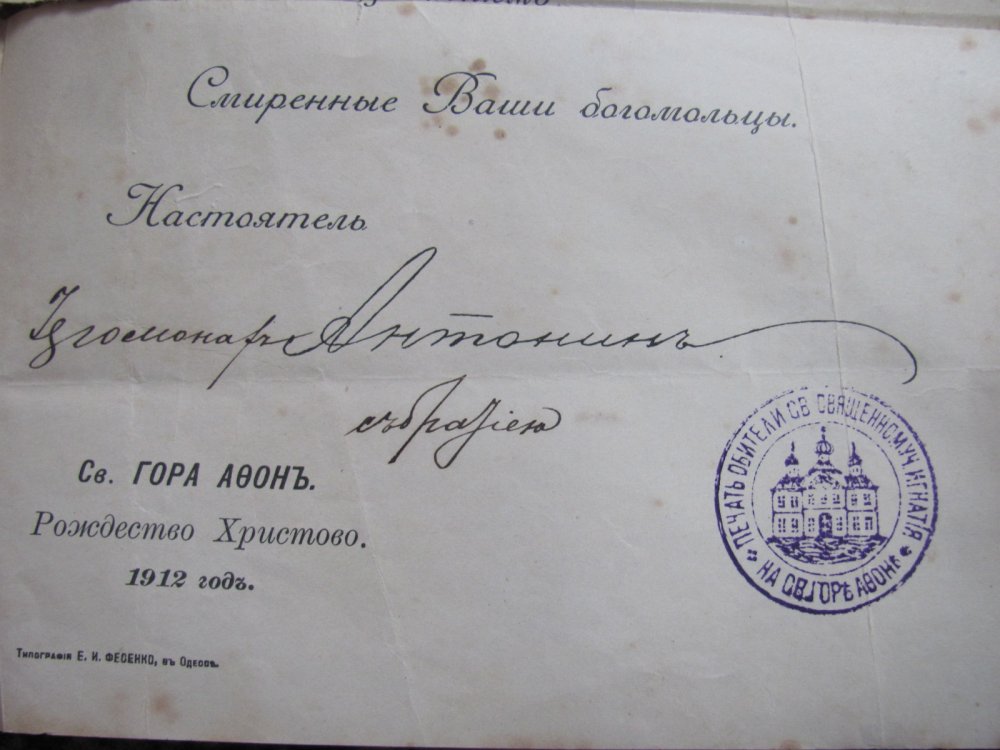 Смиренные Ваши богомольцы.
Настоятель
Іеромонахъ Антонинъ
съ братіею
Св. ГОРА АѲОНЪ.
Рождество Христово.
1912 годъ.
Типографія Е. И. ФЕСЕНКО, въ Одессѣ.
ПЕЧАТЬ ОБИТЕЛИ СВ СВЯЩЕННОМУЧ. ИГНАТІЯ
НА СВ. ГОРѢ АѲОНѢ